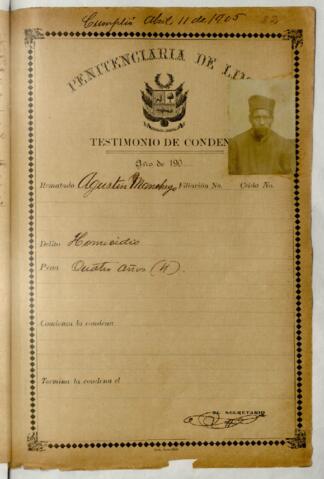 Cumplió Abril 11 de 1905
PENITENCIARIA DE LIM
TESTIMONIO DE CONDEN
Año de 190
Rematado Agustin Filiación No. Celda No.
Delito Homicidio
Pena Cuatro años (4)
Comienza la condena
Termina la condena el
EL SECRETARIO